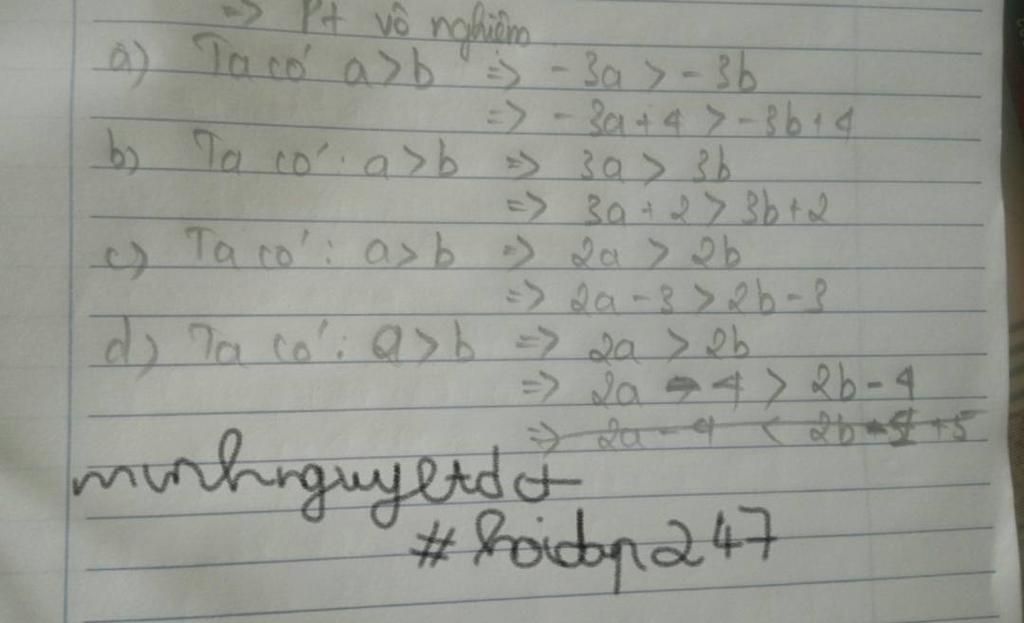 => Pt vô nghiệm
a) Ta có a>b => -3a > -3b
=> -3a+4 > -3b+4
b) Ta có: a>b => 3a > 3b
=> 3a+2 > 3b+2
c) Ta có: a>b => 2a > 2b
=> 2a-3 > 2b-3
d) Ta có: a>b => 2a > 2b
=> 2a-4 > 2b-4
=> 2a-4 < 2b +5
minhnguyetdct
#hoidap247